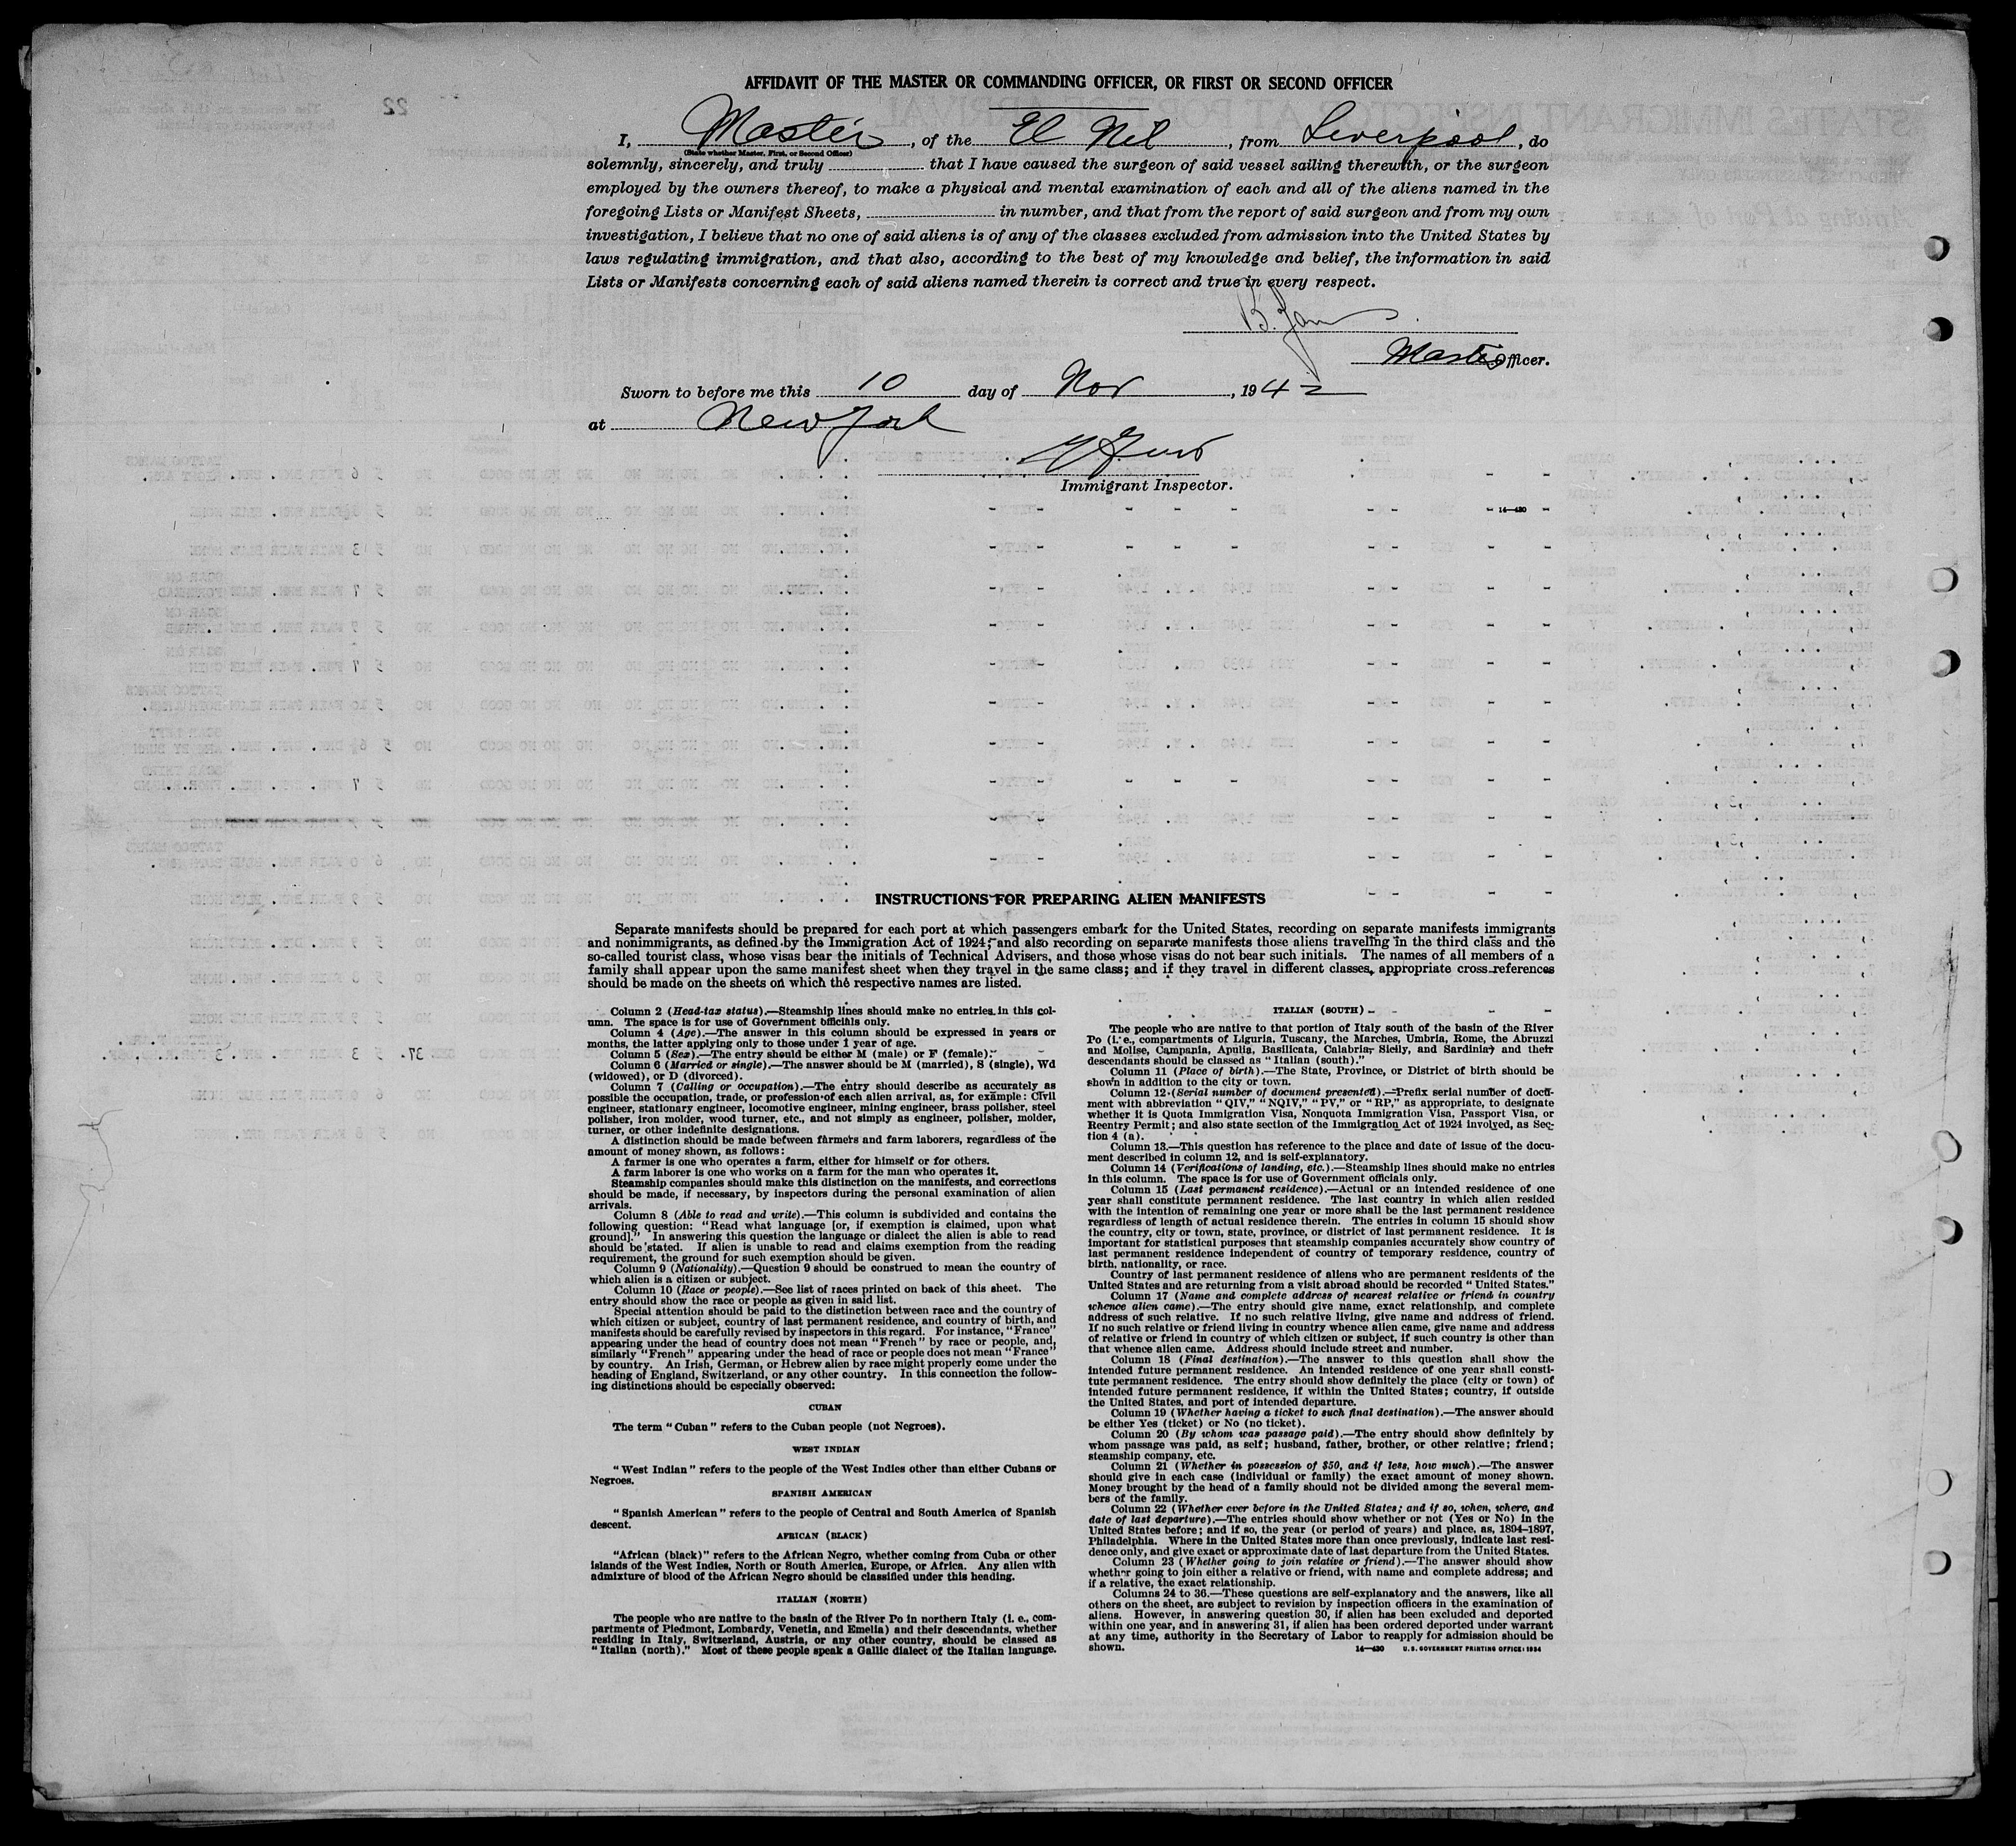 AFFIDAVIT OF THE MASTER OR COMMANDING OFFICER, OR FIRST OR SECOND OFFICER
I, Master, of the El Nil, from Liverpool, do
(State whether Master, First, or Second Officer)
solemnly, sincerely, and truly that I have caused the surgeon of said vessel sailing therewith, or the surgeon
employed by the owners thereof, to make a physical and mental examination of each and all of the aliens named in the
foregoing Lists or Manifest Sheets, in number, and that from the report of said surgeon and from my own
investigation, I believe that no one of said aliens is of any of the classes excluded from admission into the United States by
laws regulating immigration, and that also, according to the best of my knowledge and belief, the information in said
Lists or Manifests concerning each of said aliens named therein is correct and true in every respect.
B.
Master Officer.
Sworn to before me this 10 day of Nov, 1942
at New York
Immigrant Inspector.
14—430
INSTRUCTIONS FOR PREPARING ALIEN MANIFESTS
Separate manifests should be prepared for each port at which passengers embark for the United States, recording on separate manifests immigrants
and nonimmigrants, as defined by the Immigration Act of 1924; and also recording on separate manifests those aliens traveling in the third class and the
so-called tourist class, whose visas bear the initials of Technical Advisers, and those whose visas do not bear such initials. The names of all members of a
family shall appear upon the same manifest sheet when they travel in the same class; and if they travel in different classes, appropriate cross-references
should be made on the sheets on which the respective names are listed.
Column 2 (Head-tax status).—Steamship lines should make no entries in this col-
umn. The space is for use of Government officials only.
Column 4 (Age).—The answer in this column should be expressed in years or
months, the latter applying only to those under 1 year of age.
Column 5 (Sex).—The entry should be either M (male) or F (female).
Column 6 (Married or single).—The answer should be M (married), S (single), Wd
(widowed), or D (divorced).
Column 7 (Calling or occupation).—The entry should describe as accurately as
possible the occupation, trade, or profession of each alien arrival, as, for example: Civil
engineer, stationary engineer, locomotive engineer, mining engineer, brass polisher, steel
polisher, iron molder, wood turner, etc., and not simply as engineer, polisher, molder,
turner, or other indefinite designations.
A distinction should be made between farmers and farm laborers, regardless of the
amount of money shown, as follows:
A farmer is one who operates a farm, either for himself or for others.
A farm laborer is one who works on a farm for the man who operates it.
Steamship companies should make this distinction on the manifests, and corrections
should be made, if necessary, by inspectors during the personal examination of alien
arrivals.
Column 8 (Able to read and write).—This column is subdivided and contains the
following question: "Read what language [or, if exemption is claimed, upon what
ground]." In answering this question the language or dialect the alien is able to read
should be stated. If alien is unable to read and claims exemption from the reading
requirement, the ground for such exemption should be given.
Column 9 (Nationality).—Question 9 should be construed to mean the country of
which alien is a citizen or subject.
Column 10 (Race or people).—See list of races printed on back of this sheet. The
entry should show the race or people as given in said list.
Special attention should be paid to the distinction between race and the country of
which citizen or subject, country of last permanent residence, and country of birth, and
manifests should be carefully revised by inspectors in this regard. For instance, "France"
appearing under the head of country does not mean "French" by race or people, and,
similarly "French" appearing under the head of race or people does not mean "France"
by country. An Irish, German, or Hebrew alien by race might properly come under the
heading of England, Switzerland, or any other country. In this connection the follow-
ing distinctions should be especially observed:
CUBAN
The term "Cuban" refers to the Cuban people (not Negroes).
WEST INDIAN
"West Indian" refers to the people of the West Indies other than either Cubans or
Negroes.
SPANISH AMERICAN
"Spanish American" refers to the people of Central and South America of Spanish
descent.
AFRICAN (BLACK)
"African (black)" refers to the African Negro, whether coming from Cuba or other
islands of the West Indies, North or South America, Europe, or Africa. Any alien with
admixture of blood of the African Negro should be classified under this heading.
ITALIAN (NORTH)
The people who are native to the basin of the River Po in northern Italy (i. e., com-
partments of Piedmont, Lombardy, Venetia, and Emelia) and their descendants, whether
residing in Italy, Switzerland, Austria, or any other country, should be classed as
"Italian (north)." Most of these people speak a Gallic dialect of the Italian language.
ITALIAN (SOUTH)
The people who are native to that portion of Italy south of the basin of the River
Po (i. e., compartments of Liguria, Tuscany, the Marches, Umbria, Rome, the Abruzzi
and Molise, Campania, Apulia, Basilicata, Calabria, Sicily, and Sardinia) and their
descendants should be classed as "Italian (south)."
Column 11 (Place of birth).—The State, Province, or District of birth should be
shown in addition to the city or town.
Column 12 (Serial number of document presented).—Prefix serial number of docu-
ment with abbreviation "QIV," "NQIV," "PV," or "RP," as appropriate, to designate
whether it is Quota Immigration Visa, Nonquota Immigration Visa, Passport Visa, or
Reentry Permit; and also state section of the Immigration Act of 1924 involved, as Sec-
tion 4 (a).
Column 13.—This question has reference to the place and date of issue of the docu-
ment described in column 12, and is self-explanatory.
Column 14 (Verifications of landing, etc.).—Steamship lines should make no entries
in this column. The space is for use of Government officials only.
Column 15 (Last permanent residence).—Actual or an intended residence of one
year shall constitute permanent residence. The last country in which alien resided
with the intention of remaining one year or more shall be the last permanent residence
regardless of length of actual residence therein. The entries in column 15 should show
the country, city or town, state, province, or district of last permanent residence. It is
important for statistical purposes that steamship companies accurately show country of
last permanent residence independent of country of temporary residence, country of
birth, nationality, or race.
Country of last permanent residence of aliens who are permanent residents of the
United States and are returning from a visit abroad should be recorded "United States."
Column 17 (Name and complete address of nearest relative or friend in country
whence alien came).—The entry should give name, exact relationship, and complete
address of such relative. If no such relative living, give name and address of friend.
If no such relative or friend living in country whence alien came, give name and address
of relative or friend in country of which citizen or subject, if such country is other than
that whence alien came. Address should include street and number.
Column 18 (Final destination).—The answer to this question shall show the
intended future permanent residence. An intended residence of one year shall consti-
tute permanent residence. The entry should show definitely the place (city or town) of
intended future permanent residence, if within the United States; country, if outside
the United States, and port of intended departure.
Column 19 (Whether having a ticket to such final destination).—The answer should
be either Yes (ticket) or No (no ticket).
Column 20 (By whom was passage paid).—The entry should show definitely by
whom passage was paid, as self; husband, father, brother, or other relative; friend;
steamship company, etc.
Column 21 (Whether in possession of $50, and if less, how much).—The answer
should give in each case (individual or family) the exact amount of money shown.
Money brought by the head of a family should not be divided among the several mem-
bers of the family.
Column 22 (Whether ever before in the United States; and if so, when, where, and
date of last departure).—The entries should show whether or not (Yes or No) in the
United States before; and if so, the year (or period of years) and place, as, 1894–1897,
Philadelphia. Where in the United States more than once previously, indicate last resi-
dence only, and give exact or approximate date of last departure from the United States.
Column 23 (Whether going to join relative or friend).—The answer should show
whether going to join either a relative or friend, with name and complete address; and
if a relative, the exact relationship.
Columns 24 to 36.—These questions are self-explanatory and the answers, like all
others on the sheet, are subject to revision by inspection officers in the examination of
aliens. However, in answering question 30, if alien has been excluded and deported
within one year, and in answering 31, if alien has been ordered deported under warrant
at any time, authority in the Secretary of Labor to reapply for admission should be
shown.
14—430 U. S. GOVERNMENT PRINTING OFFICE: 1934